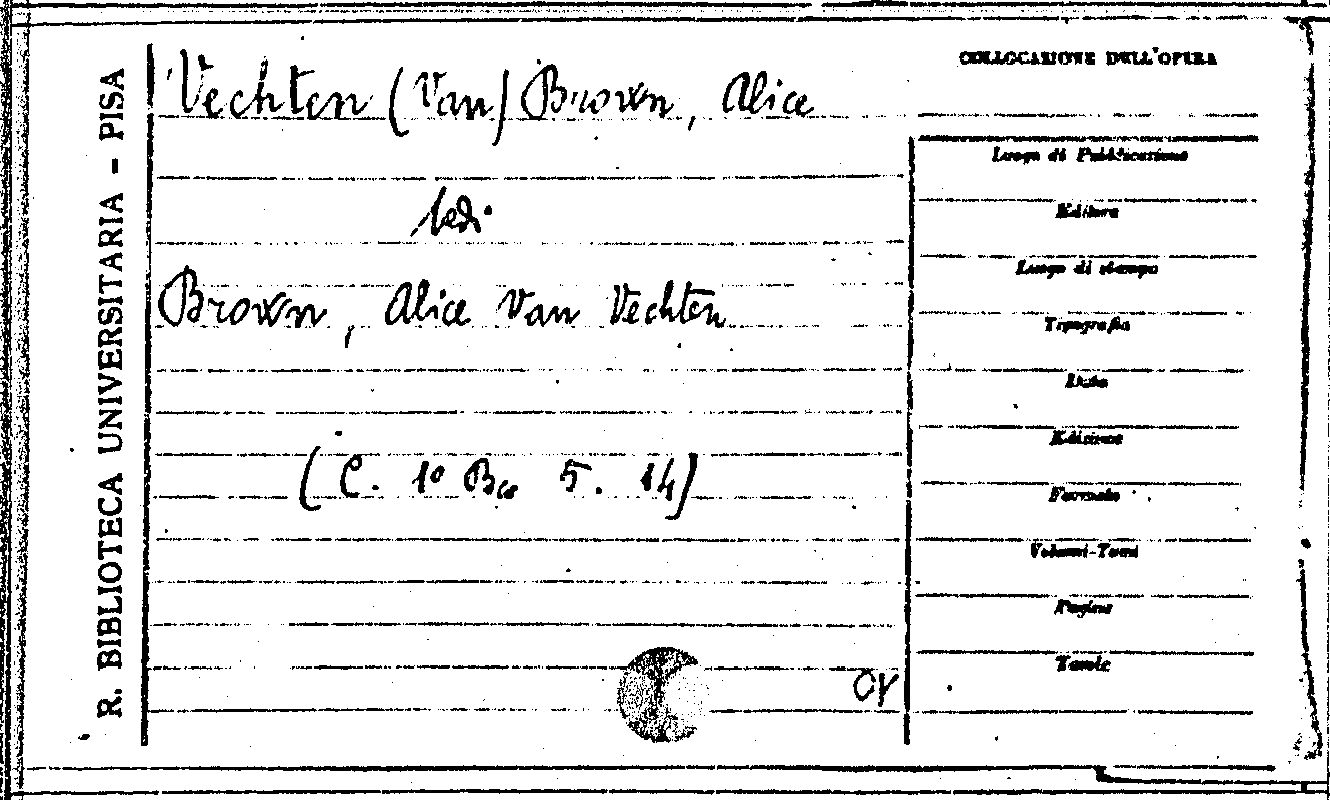 R. BIBLIOTECA UNIVERSITARIA - PISA
Vechten (Van) Brown, Alice
Vedi
Brown, Alice Van Vechten
(C. 1º Bca 5. 14)
COLLOCAZIONE DELL'OPERA
Luogo di Pubblicazione
Editore
Luogo di stampa
Tipografia
Data
Edizione
Formato
Volumi-Tomi
Pagine
Tavole